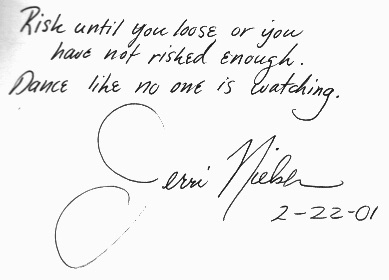 Risk until you loose or you
have not risked enough.
Dance like no one is watching.
Jerri Nielsen
2-22-01